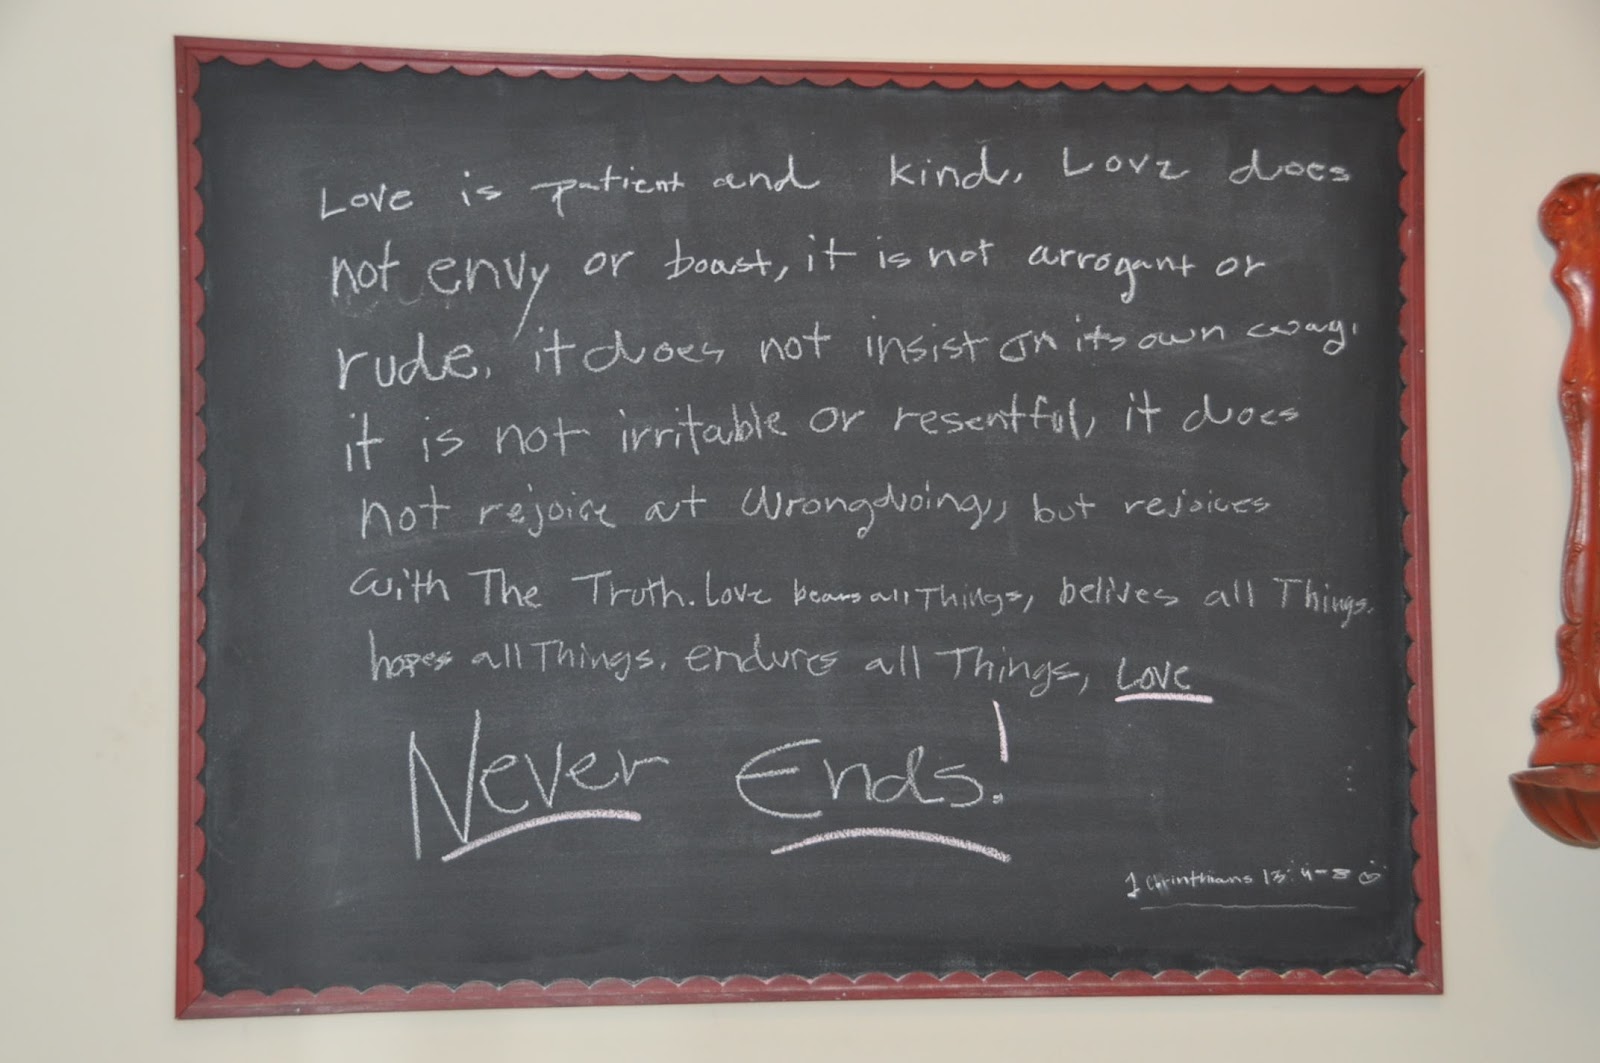 Love is patient and kind. Love does
not envy or boast, it is not arrogant or
rude. it does not insist on its own way.
it is not irritable or resentful, it does
not rejoice at wrongdoing, but rejoices
with The Truth. Love bears all Things, belives all Things.
hopes all Things. endures all Things, Love
Never Ends!
1 Corinthians 13:4-8